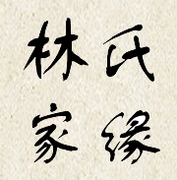 林氏
家缘